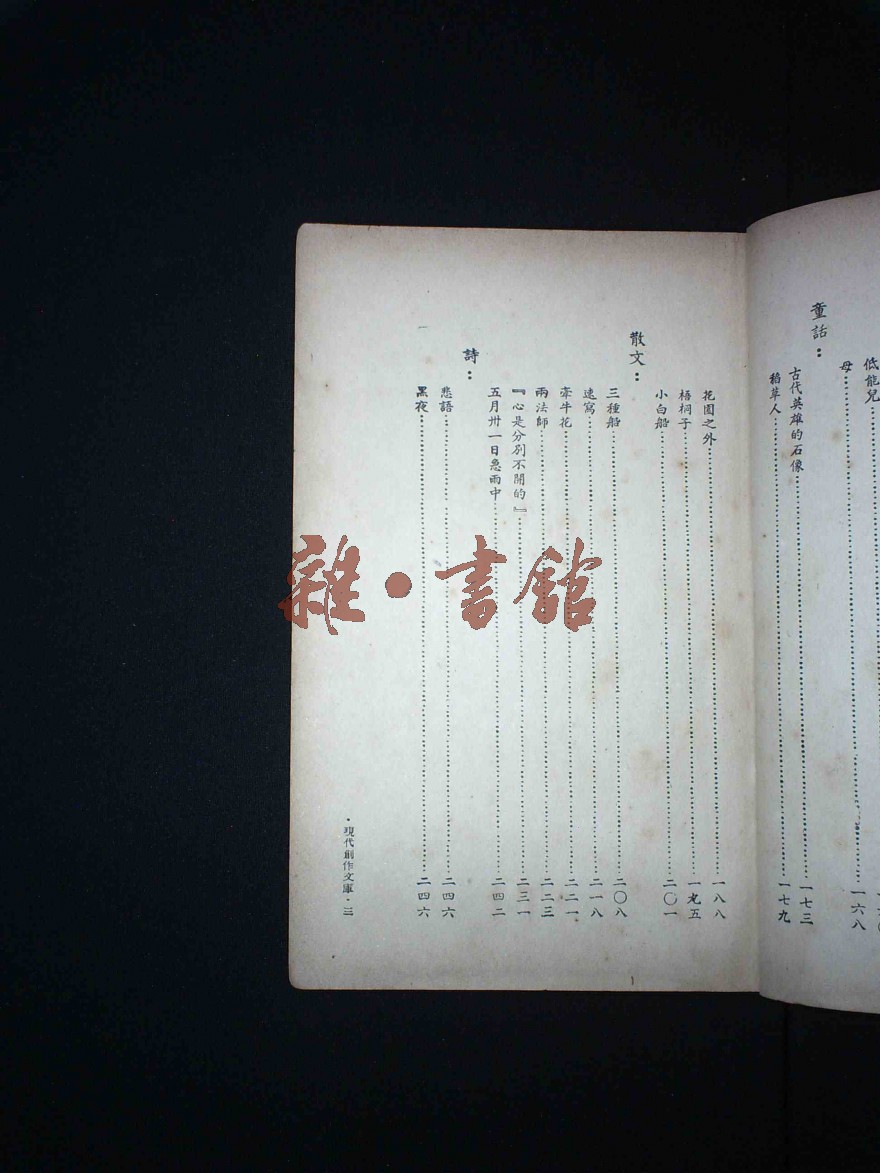 低能兒
母⋯⋯一六八
童話：
古代英雄的石像⋯⋯一七三
稻草人⋯⋯一七九
花園之外⋯⋯一八八
梧桐子⋯⋯一九五
小白船⋯⋯二〇一
散文：
三種船⋯⋯二〇八
速寫⋯⋯二一八
牽牛花⋯⋯二二一
兩法師⋯⋯二二三
『心是分別不開的』⋯⋯二三一
五月卅一日急雨中⋯⋯二四二
詩：
悲語⋯⋯二四六
黑夜⋯⋯二四六
·現代創作文庫·三
雜·書館